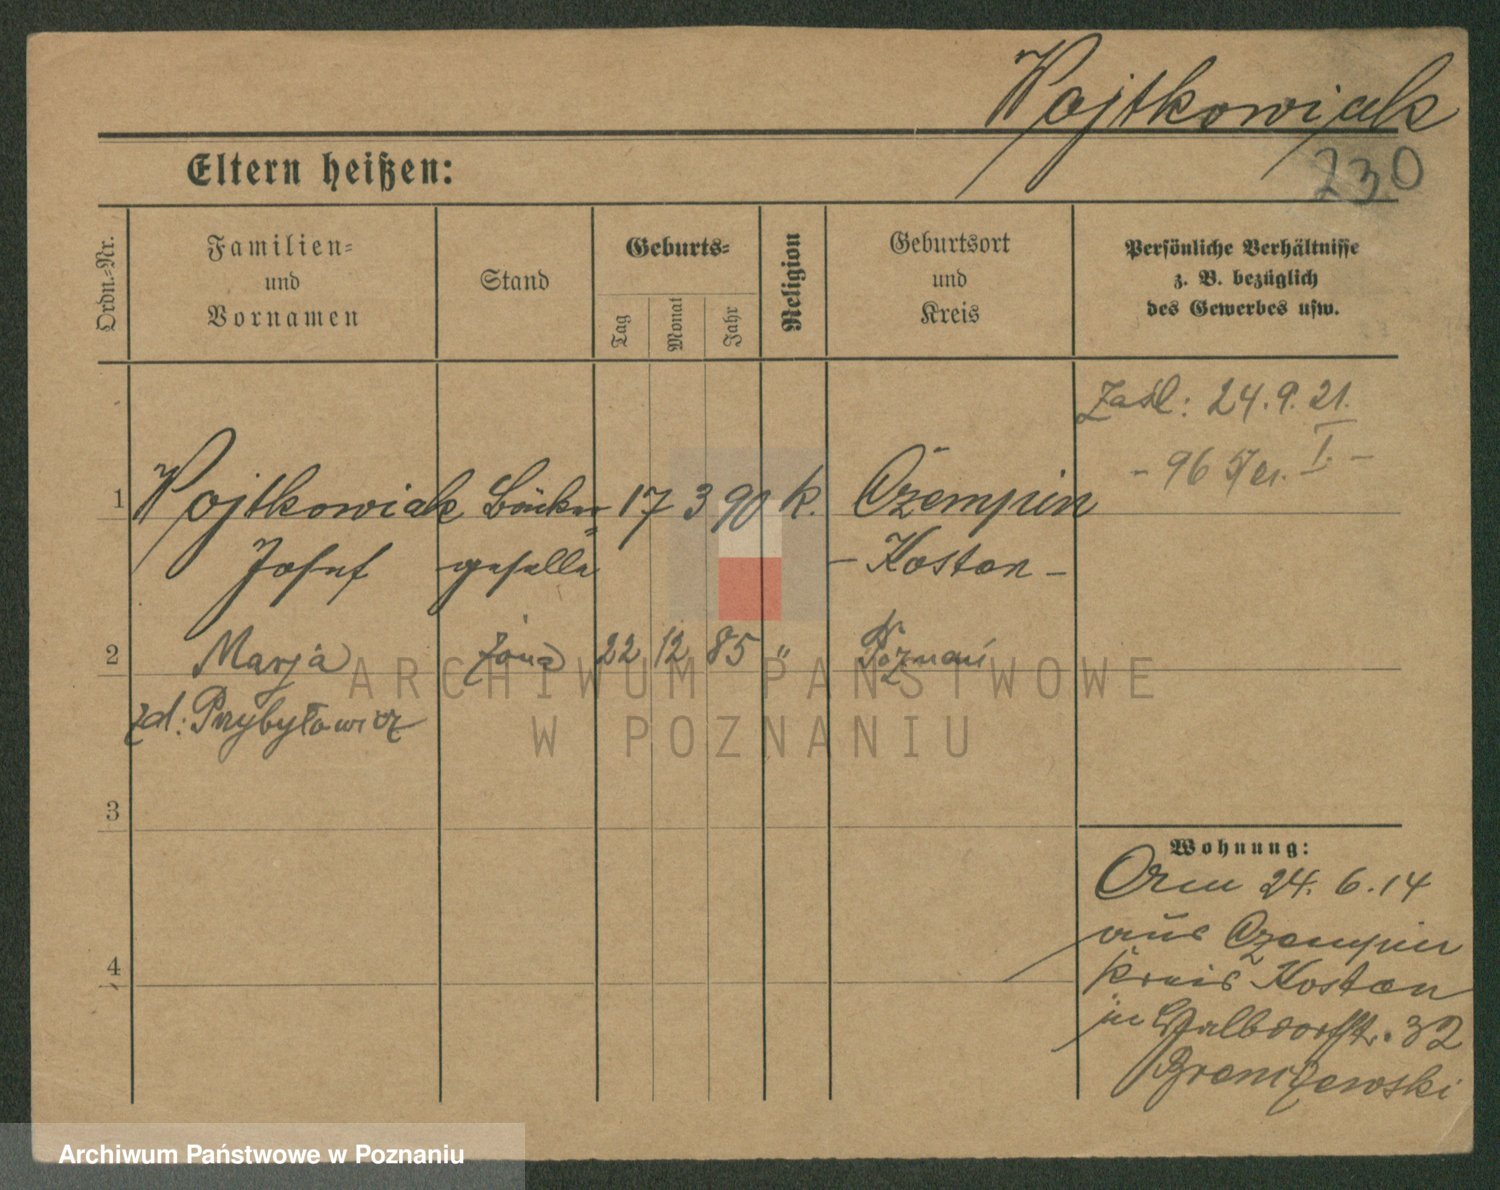 Wojtkowiak
230
Eltern heißen:
Ordn.=Nr.
Familien=
und
Vornamen
Stand
Geburts=
Tag
Monat
Jahr
Religion
Geburtsort
und
Kreis
Persönliche Verhältnisse
z. B. bezüglich
des Gewerbes usw.
Zaśl: 24.9.21.
- 96 I. -
1 Wojtkowiak Bäcker= 17 3 90 k. Czempin
Josef geselle - Kosten -
2 Marja żona 22 12 85 " Poznań
zd: Przybyłowicz
3
4
Wohnung:
24. 6. 14
aus Czempin
Kreis Kosten
in 32
ARCHIWUM PAŃSTWOWE
W POZNANIU
Archiwum Państwowe w Poznaniu